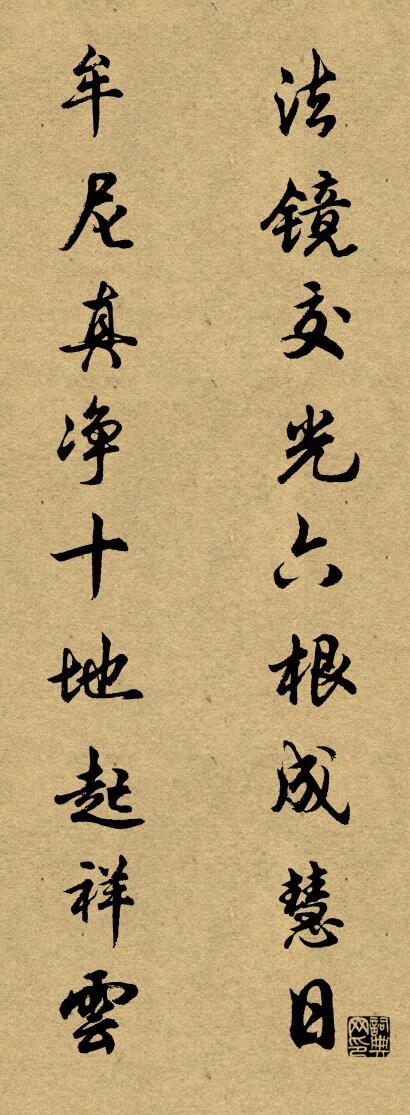 法镜交光六根成慧日
牟尼真净十地起祥雲
詞典网印